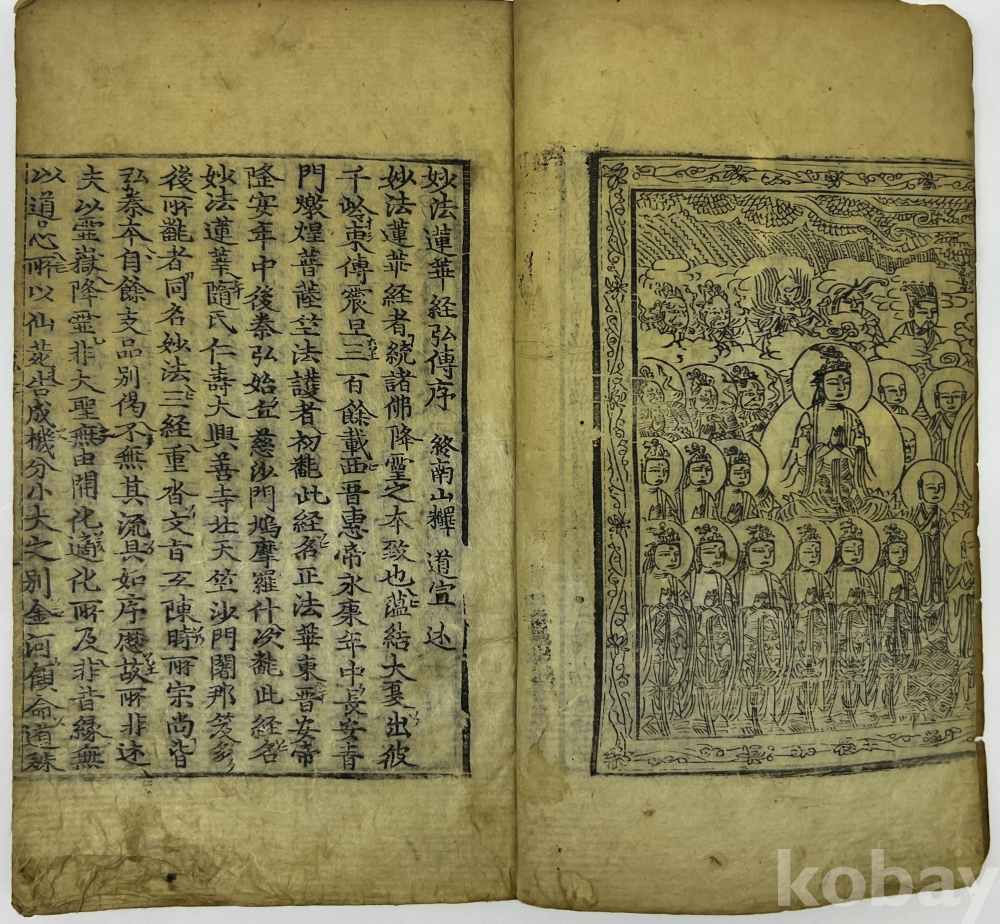 妙法蓮華經弘傳序 終南山釋 道宣 述
妙法蓮華經者統諸佛降靈之本致也蘊結大夏出彼
千齡東傳震旦三百餘載西晋惠帝永康年中長安青
門燉煌菩薩竺法護者初飜此經名正法華東晋安帝
隆安年中後秦弘始龜慈沙門鳩摩羅什次飜此經名
妙法蓮華隨氏仁壽大興善寺北天竺沙門闍那笈多
後所飜者同名妙法三經重沓文旨互陳時所宗尚皆
弘秦本自餘支品別偈不無其流具如序歷故所非述
夫以靈嶽降靈非大聖無由開化適化所及非昔緣無
以道心所以仙苑告成機分小大之別金河顧命道殊
kobay